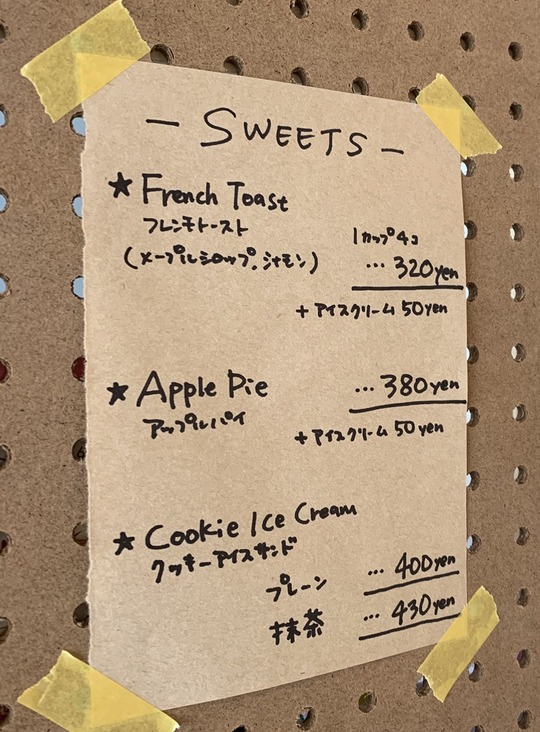 — SWEETS —
★ French Toast
フレンチトースト
(メープルシロップ、シナモン)
1カップ4コ
... 320yen
+ アイスクリーム 50yen
★ Apple Pie
... 380yen
アップルパイ
+ アイスクリーム 50yen
★ Cookie Ice Cream
クッキーアイスサンド
プレーン ... 400yen
抹茶 ... 430yen